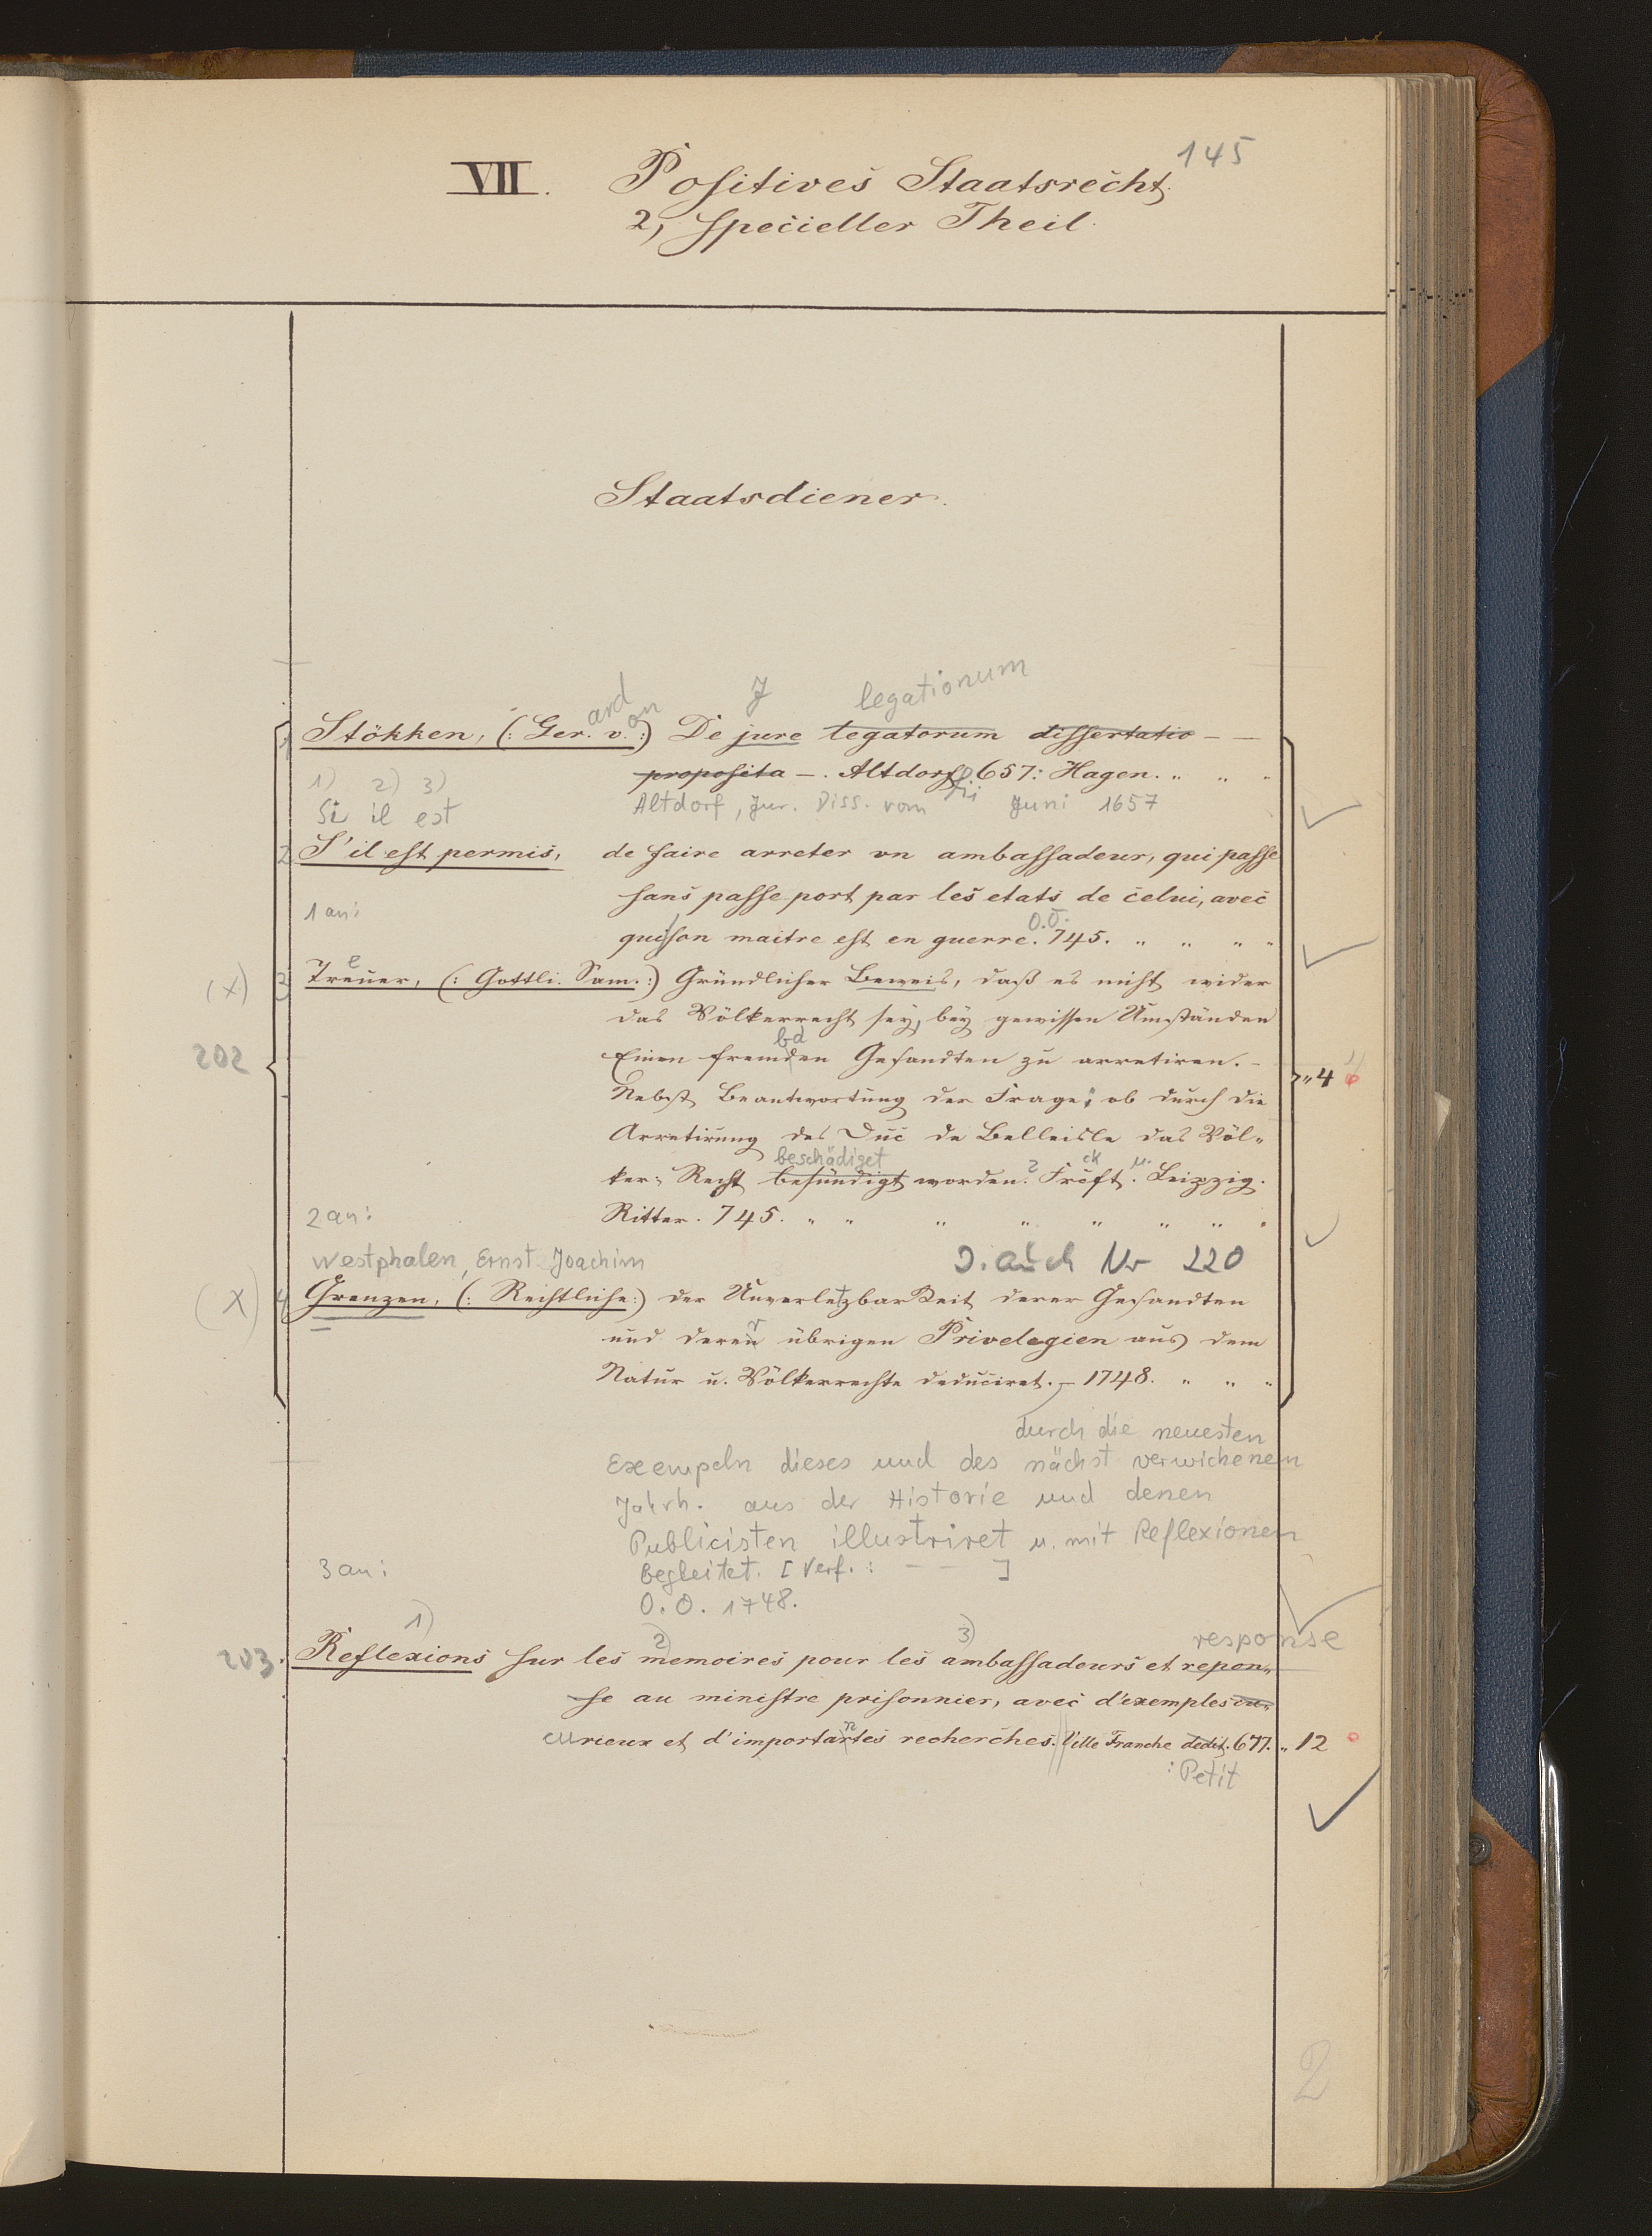 145
VII. Positives Staatsrecht.
2, specieller Theil.
Staatsdiener.
ard on J legationum
1 Stökken, (: Ger. v. :) De jure legatorum dissertatio — —
proposita —. Altdorf 657: Hagen. " " "
1) 2) 3)
Altdorf, Jur. Diss. vom Juni 1657
Si il est
2 S'il est permis, de faire arreter un ambassadeur, qui passe
sans passe port par les etats de celui, avec
1 an:
O.O.
qui son maitre est en guerre. 745. " " " "
(x) 3 Treuer, (: Gottli. Sam. :) Gründlicher Beweis, daß es nicht wider
das Völkerrecht sey, bey gewissen Umständen
202
Einen fremden Gesandten zu arretiren. –
" 4
Nebst Beantwortung der Frage; ob durch die
Arretirung des Duc de Belleisle das Völ-
beschädiget ? ck u.
ker: Recht besündigt worden. Fröft. Leipzig.
Ritter. 745. " " " " " " " "
2 an:
Westphalen, Ernst Joachim
S. auch Nr 220
(x) 4 Grenzen, (: Rechtliche :) der Unverletzbarkeit derer Gesandten
und deren übrigen Privelegien aus dem
Natur u. Völkerrechte deduciret. – 1748. " " "
durch die neuesten
Exempeln dieses und des nächst verwichenen
Jahrh. aus der Historie und denen
Publicisten illustriret u. mit Reflexionen
3 an:
begleitet. [Verf.: — — ]
O. O. 1748.
1) 2) 3) response
203. Reflexions sur les memoires pour les ambassadeurs et repon-
se au ministre prisonnier, avec d'exemples cu-
curieux et d'importantes recherches. Ville Franche dedit. 677. " 12
: Petit
2